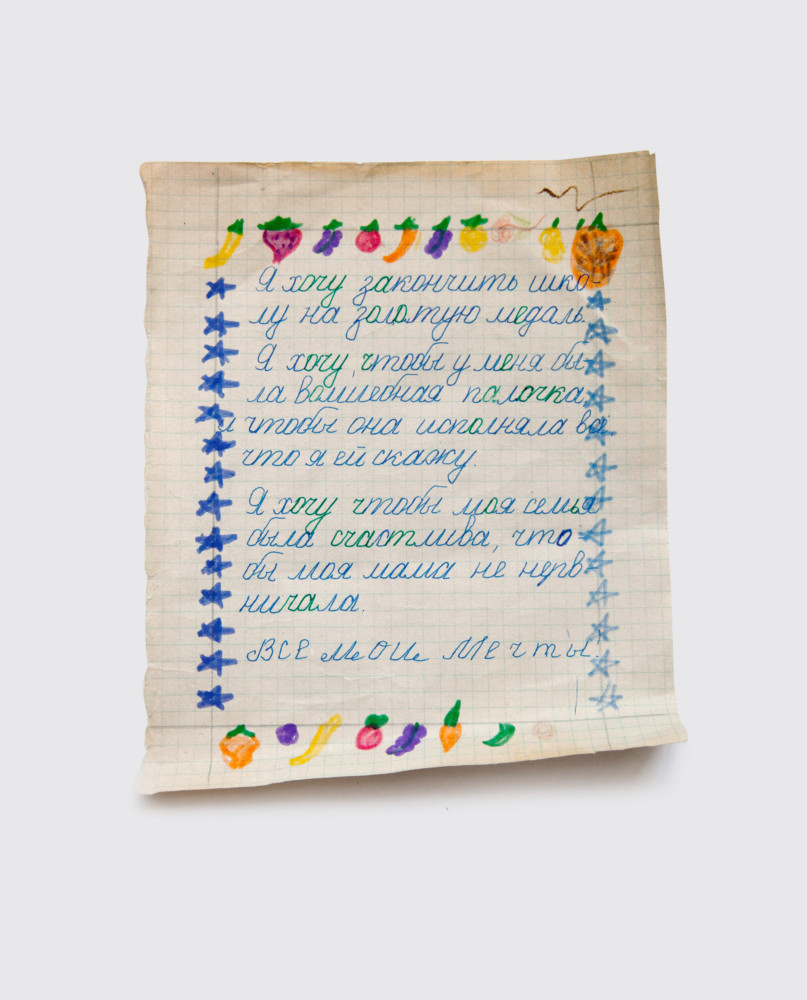 Я хочу закончить шко-
лу на золотую медаль.
Я хочу, чтобы у меня бы-
ла волшебная палочка,
и чтобы она исполняла всё
что я ей скажу.
Я хочу чтобы моя семья
была счастлива, что
бы моя мама не нерв
ничала.
Все мои мечты!